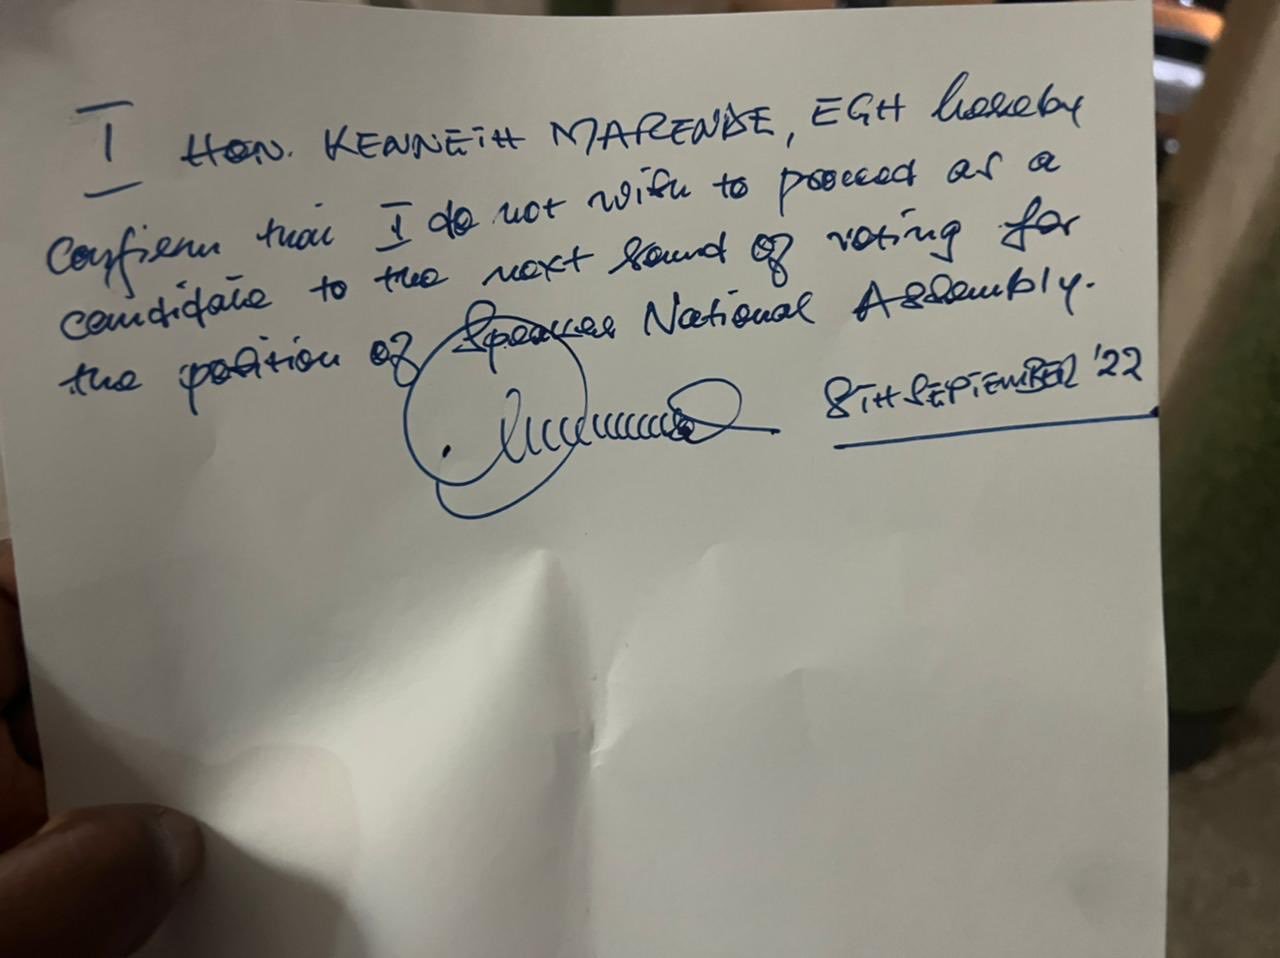 I HON. KENNETH MARENDE, EGH hereby
confirm that I do not wish to proceed as a
candidate to the next round of voting for
the position of Speaker National Assembly.
8TH SEPTEMBER '22